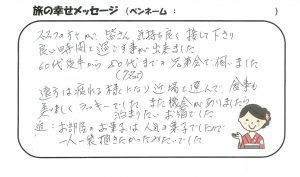 旅の幸せメッセージ (ペンネーム： )
スタッフの方々が 皆さん 気持ち良く 接して下さり
良い時間を過ごす事が出来ました
60代後半から 80代までの 兄弟会で伺いました
遠方は疲れる様になり 近場を選んで 食事も
美味しく ラッキーでした また機会がありましたら
泊まりたいお宿でした
追：お部屋のお菓子は人気の菓子でしたので
一人一袋 頂きたかったみたいでした